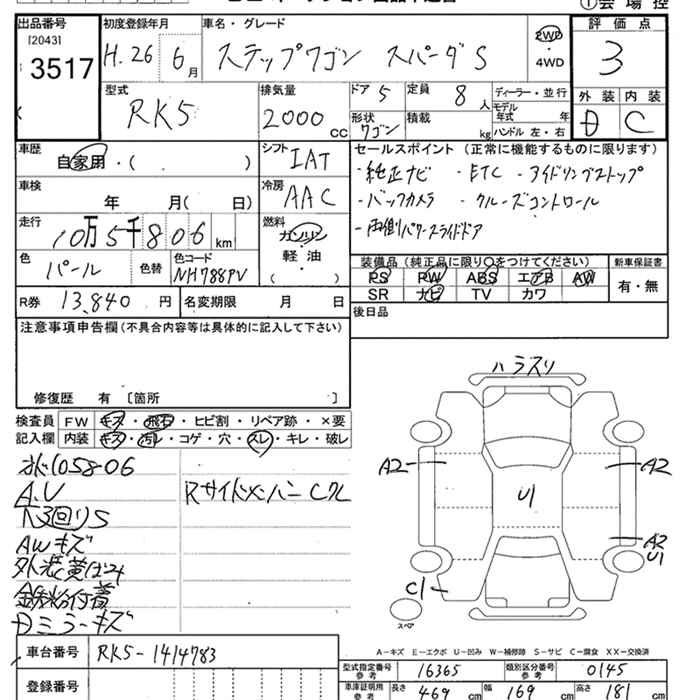 出品番号 初度登録年月 車名・グレード 評価点
[2043] 3517 H.26 6月 ステップワゴン スパーダS 2WD・4WD 3
型式 排気量 ドア 5 定員 8人 ディーラー・並行 外装 内装
RK5 2000cc 形状 ワゴン 積載 kg モデル年式 年 ハンドル 左・右 D C
車歴 自家用・( ) シフト IAT セールスポイント (正常に機能するものに限ります)
・純正ナビ ・ETC ・アイドリングストップ
車検 年 月( 日) 冷房 AAC ・バックカメラ ・クルーズコントロール
走行 10万5千806km 燃料 ガソリン・軽油・( ) ・両側パワースライドドア
色 パール 色替 色コード NH788PV 装備品 (純正品に限り○をつけてください) 新車保証書
PS PW ABS エアB AW 有・無
SR ナビ TV カワ
R券 13,840円 名変期限 月 日 後日品
注意事項申告欄(不具合内容等は具体的に記入して下さい)
修復歴 有 [箇所 ]
検査員 FW キズ・飛石・ヒビ割・リペア跡・×要
記入欄 内装 キズ・汚レ・コゲ・穴・スレ・キレ・破レ
105806
A.U Rサイドメンバー
下回りS
AWキズ
外装黄ばみ
鉄粉付着
Dミラーキズ
ハラスリ
A2 A2
U1
A2
U1
C1
スペア
A-キズ E-エクボ U-凹み W-補修跡 S-サビ C-腐食 XX-交換済
車台番号 RK5-1414783 型式指定番号 参考 16365 類別区分番号 参考 0145
登録番号 車庫証明用 参考 長さ 469cm 幅 169cm 高さ 181cm